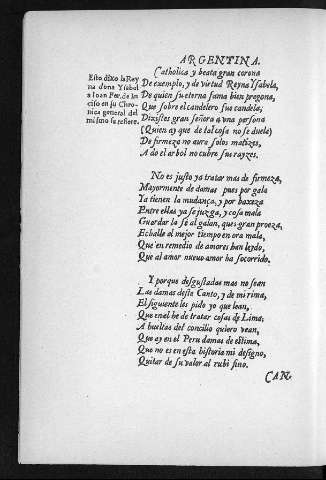 ARGENTINA.
Esto dixo la Rey
na doña Ysabel
a Ioan Fer. de En
ciso en su Chro-
nica general del
mismo se refiere.
Catholica y beata gran corona
De exemplo, y de virtud Reyna Ysabela,
De quien su eterna fama bien pregona,
Que sobre el candelero su candela,
Dixistes gran señora a vna persona
(Quien ay que de tal cosa no se duela)
De firmeza no aura solos matizes,
A do el arbol no cubre sus rayzes.
No es justo ya tratar mas de firmeza,
Mayormente de damas pues por gala
Ya tienen la mudança, y por baxeza
Entre ellas ya se juzga, y cosa mala
Guardar la fe al galan, ques gran proeza,
Echalle al mejor tiempo en ora mala,
Que en remedio de amores han leydo,
Que al amor nueuo amor ha socorrido.
Y porque desgustadas mas no sean
Las damas deste Canto, y de mi rima,
El siguiente les pido yo que lean,
Que en el he de tratar cosas de Lima;
A bueltas del concilio quiero vean,
Que ay en el Peru damas de estima,
Que no es en esta historia mi designo,
Quitar de su valor al rubi fino.
CAN-